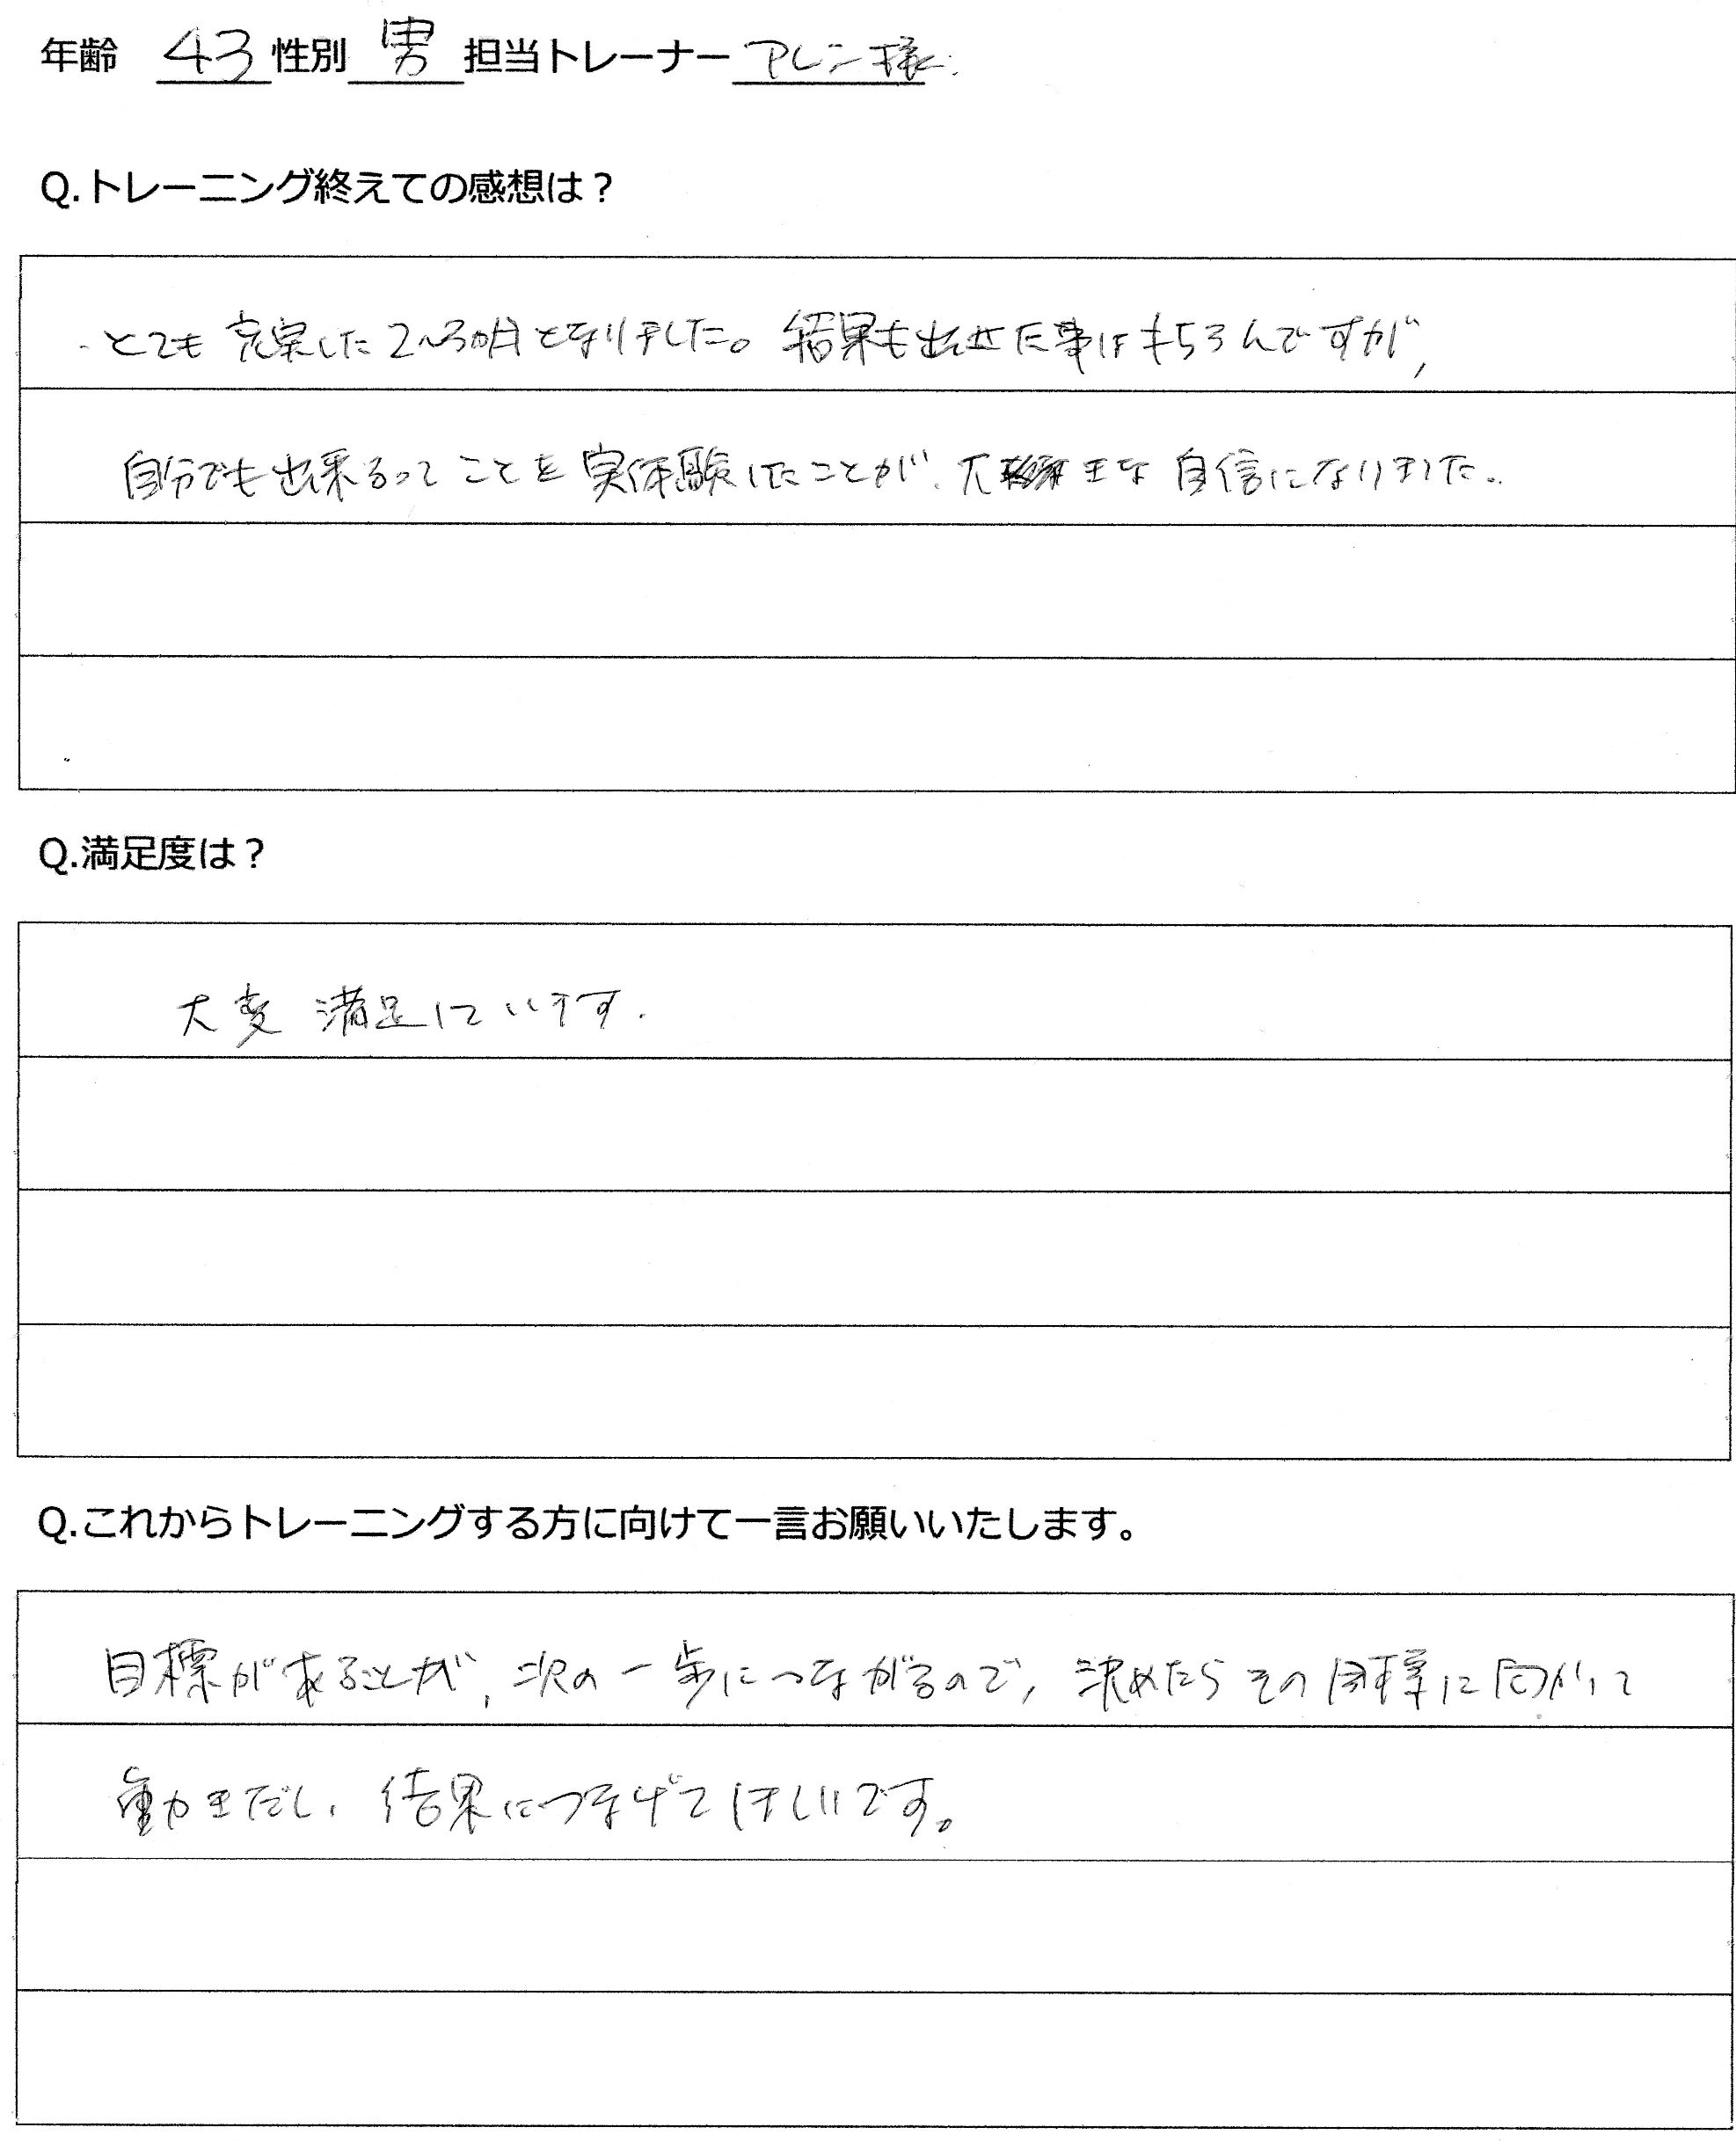 年齢 43 性別 男 担当トレーナー アレン様
Q.トレーニング終えての感想は？
とても充実した2～3ヵ月となりました。結果も出せた事はもちろんですが,
自分でも出来るってことを実体験したことが、大きな自信になりました。
Q.満足度は？
大変 満足しています.
Q.これからトレーニングする方に向けて一言お願いいたします。
目標があることが, 次の一歩につながるので, 決めたらその目標に向かって
動きだし、結果につなげてほしいです。